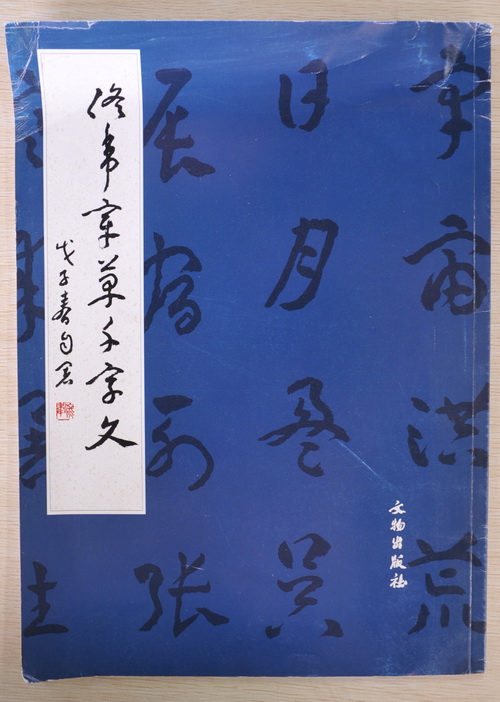 佟韦章草千字文
戊子春自署
宇宙洪荒
日月盈昃
辰宿列张
文物出版社